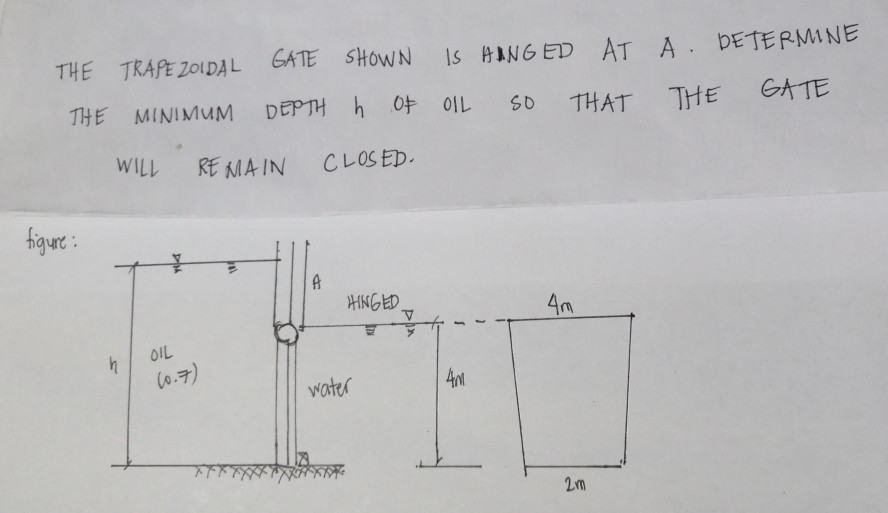 THE TRAPEZOIDAL GATE SHOWN IS HINGED AT A. DETERMINE
THE MINIMUM DEPTH h OF OIL SO THAT THE GATE
WILL REMAIN CLOSED.
figure:
A
HINGED
4m
h
OIL
(0.7)
water
4m
2m